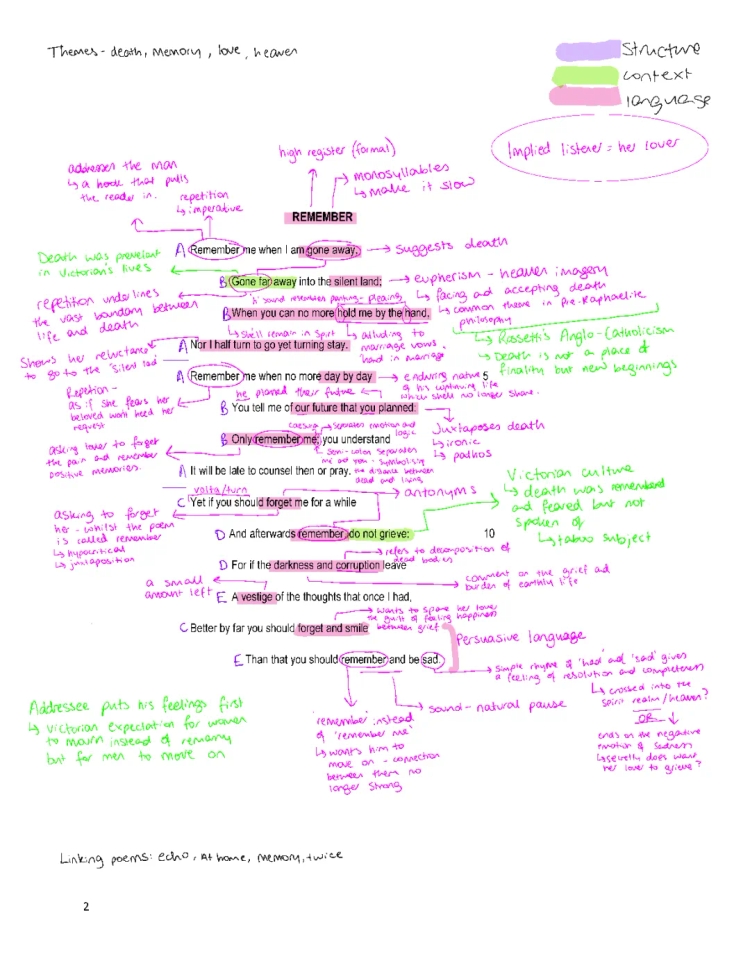 Themes - death, memory, love, heaven
Structure
context
language
Implied listener = her lover
high register (formal)
monosyllables
↳ make it slow
addresses the man
↳ a hook that pulls
the reader in.
repetition
↳ imperative
REMEMBER
Death was prevelent
in Victorian's lives
A Remember me when I am gone away,
→ suggests death
B Gone far away into the silent land;
→ euphemism - heaven imagery
↳ facing and accepting death
↳ common theme in Pre-Raphaelite
philosophy
repetition underlines
the vast boundary between
life and death
'h' sound resembles panting - pleading
B When you can no more hold me by the hand,
↳ still remain in spirit
↳ alluding to
marriage vows.
hand in marriage
↳ Rossetti's Anglo-Catholicism
↳ Death is not a place of
finality but new beginnings
A Nor I half turn to go yet turning stay.
Shows her reluctance
to go to the 'silent land'
A Remember me when no more day by day
→ enduring nature
of his continuing life
which she'll no longer share.
5
Repetion -
as if she fears her
beloved won't heed her
request
he planned their future
B You tell me of our future that you planned:
Juxtaposes death
↳ ironic
↳ pathos
caesura → separates emotion and
logic
B Only remember me; you understand
↳ semi-colon separates
me and you - symbolising
the distance between
dead and living
asking lover to forget
the pain and remember
positive memories.
A It will be late to counsel then or pray.
volta/turn
C Yet if you should forget me for a while
→ antonyms
Victorian culture
↳ death was remembered
and feared but not
spoken of
↳ taboo subject
asking to forget
her - whilst the poem
is called remember
↳ hypocritical
↳ juxtaposition
D And afterwards remember, do not grieve:
10
→ refers to decomposition of
dead bodies
D For if the darkness and corruption leave
comment on the grief and
burden of earthly life
a small
amount left
E A vestige of the thoughts that once I had,
→ wants to spare her lover
the guilt of feeling happiness
between grief
C Better by far you should forget and smile
Persuasive language
E Than that you should remember and be sad.
→ simple rhyme of 'had' and 'sad' gives
a feeling of resolution and completeness
↳ crossed into the
spirit realm/heaven?
OR
ends on the negative
emotion of sadness
↳ secretly does want
her lover to grieve?
→ sound - natural pause
'remember' instead
of 'remember me'
↳ wants him to
move on - connection
between them no
longer strong
Addressee puts his feelings first
↳ Victorian expectation for women
to mourn instead of remarry
but for men to move on
Linking poems: echo, At home, memory, twice
2